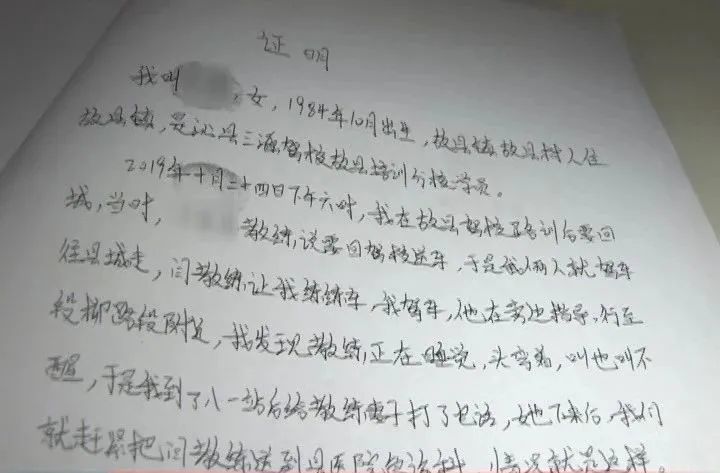 证明
我叫 ,女,1984年10月出生,故县镇故县村人住
故县镇,是沁县三源驾校故县培训分校学员。
2019年十月二十四日下午六时,我在故县驾校培训后要回
城,当时, 教练,说要回驾校送车,于是我俩人就驾车
往县城走,闫教练让我练练车,我驾车,他在旁边指导,行至
段柳路段附近,我发现教练正在睡觉,头弯着,叫也叫不
醒,于是我到了八一站后给教练妻子打了电话,她下来后,我们
就赶紧把闫教练送到县医院急诊科,情况就是这样。